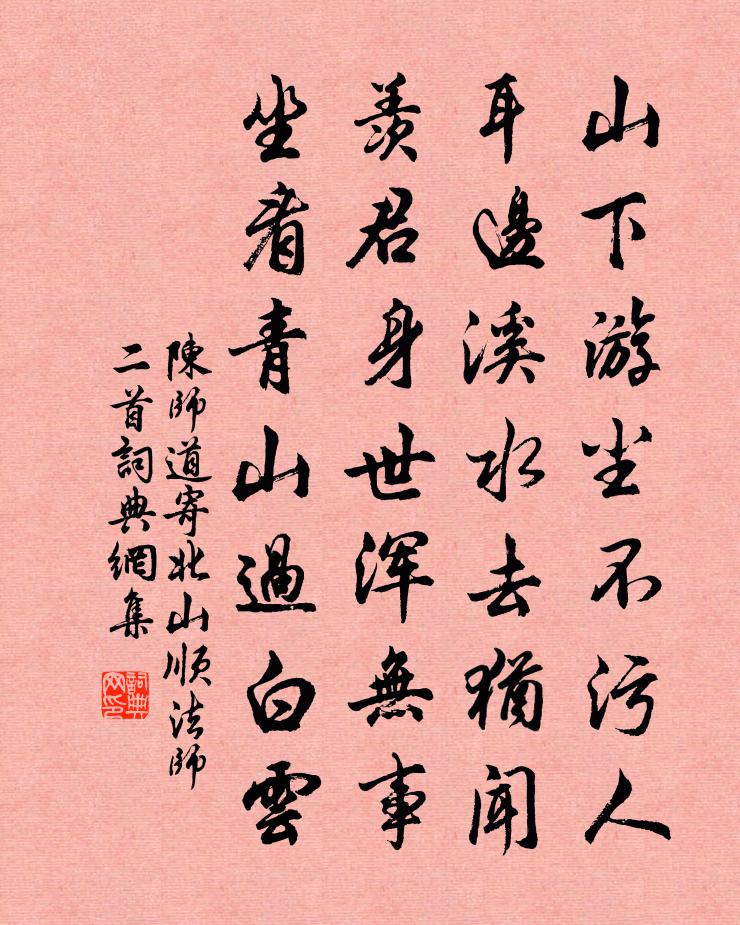 山下游尘不污人
耳邊溪水去猶闻
羡君身世浑無事
坐看青山過白雲
陳師道寄北山順法師
二首詞典網集
詞典
网印